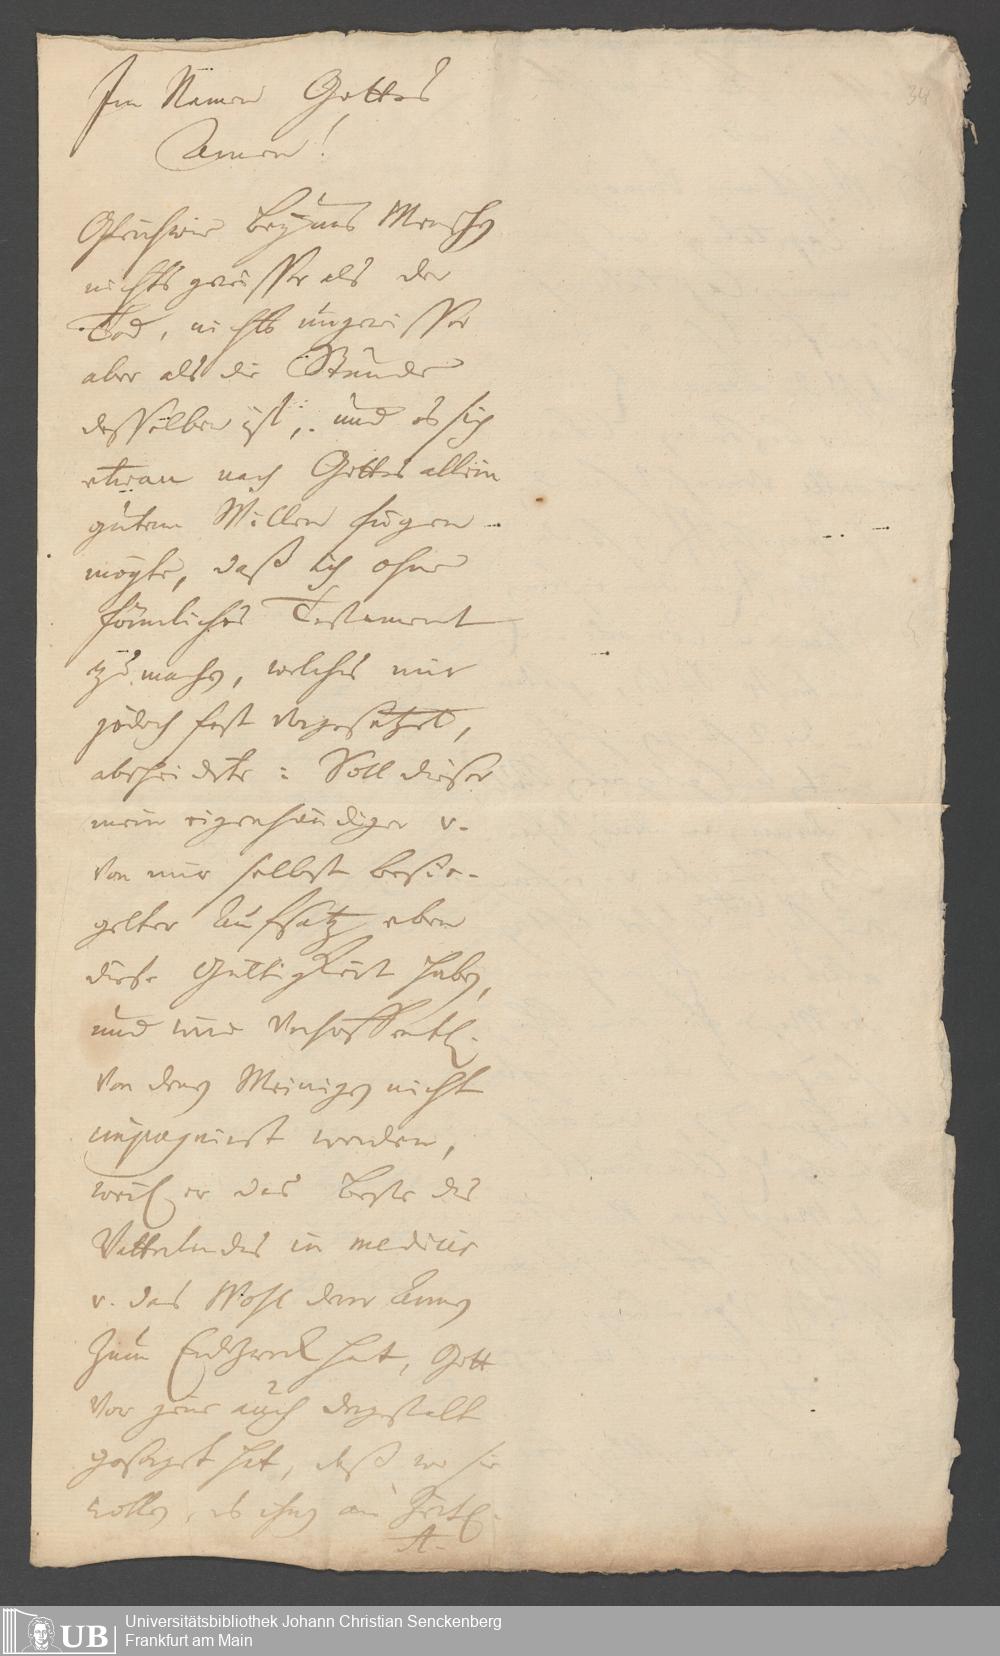 34
Im Namen Gottes
Amen!
Gleichwie bey uns Menschen
nichts gewisser als der
Tod, nichts ungewisser
aber als die Stunde
desselben ist, und es sich
etwan nach Gottes allein
gutem Willen fügen
mögte, daß ich ohne
förmliches Testament
zu machen, welches mir
jedoch fest vorgesetzet,
abscheidete: Soll dieser
mein eigenhändiger v.
von mir selbst besie-
gelter Aufsatz eben
diese Gültigkeit haben,
und wie verhoffentl.
von denen Meinigen nicht
impugniret werden,
weil er das Beste des
Vatterlandes in medicis
v. das Wohl derer Armen
zum Endzweck hat, Gott
vor jene auch dergestalt
gesorget hat, daß wo sie
wollen, es ihnen an zeitl.
Universitätsbibliothek Johann Christian Senckenberg
Frankfurt am Main
UB